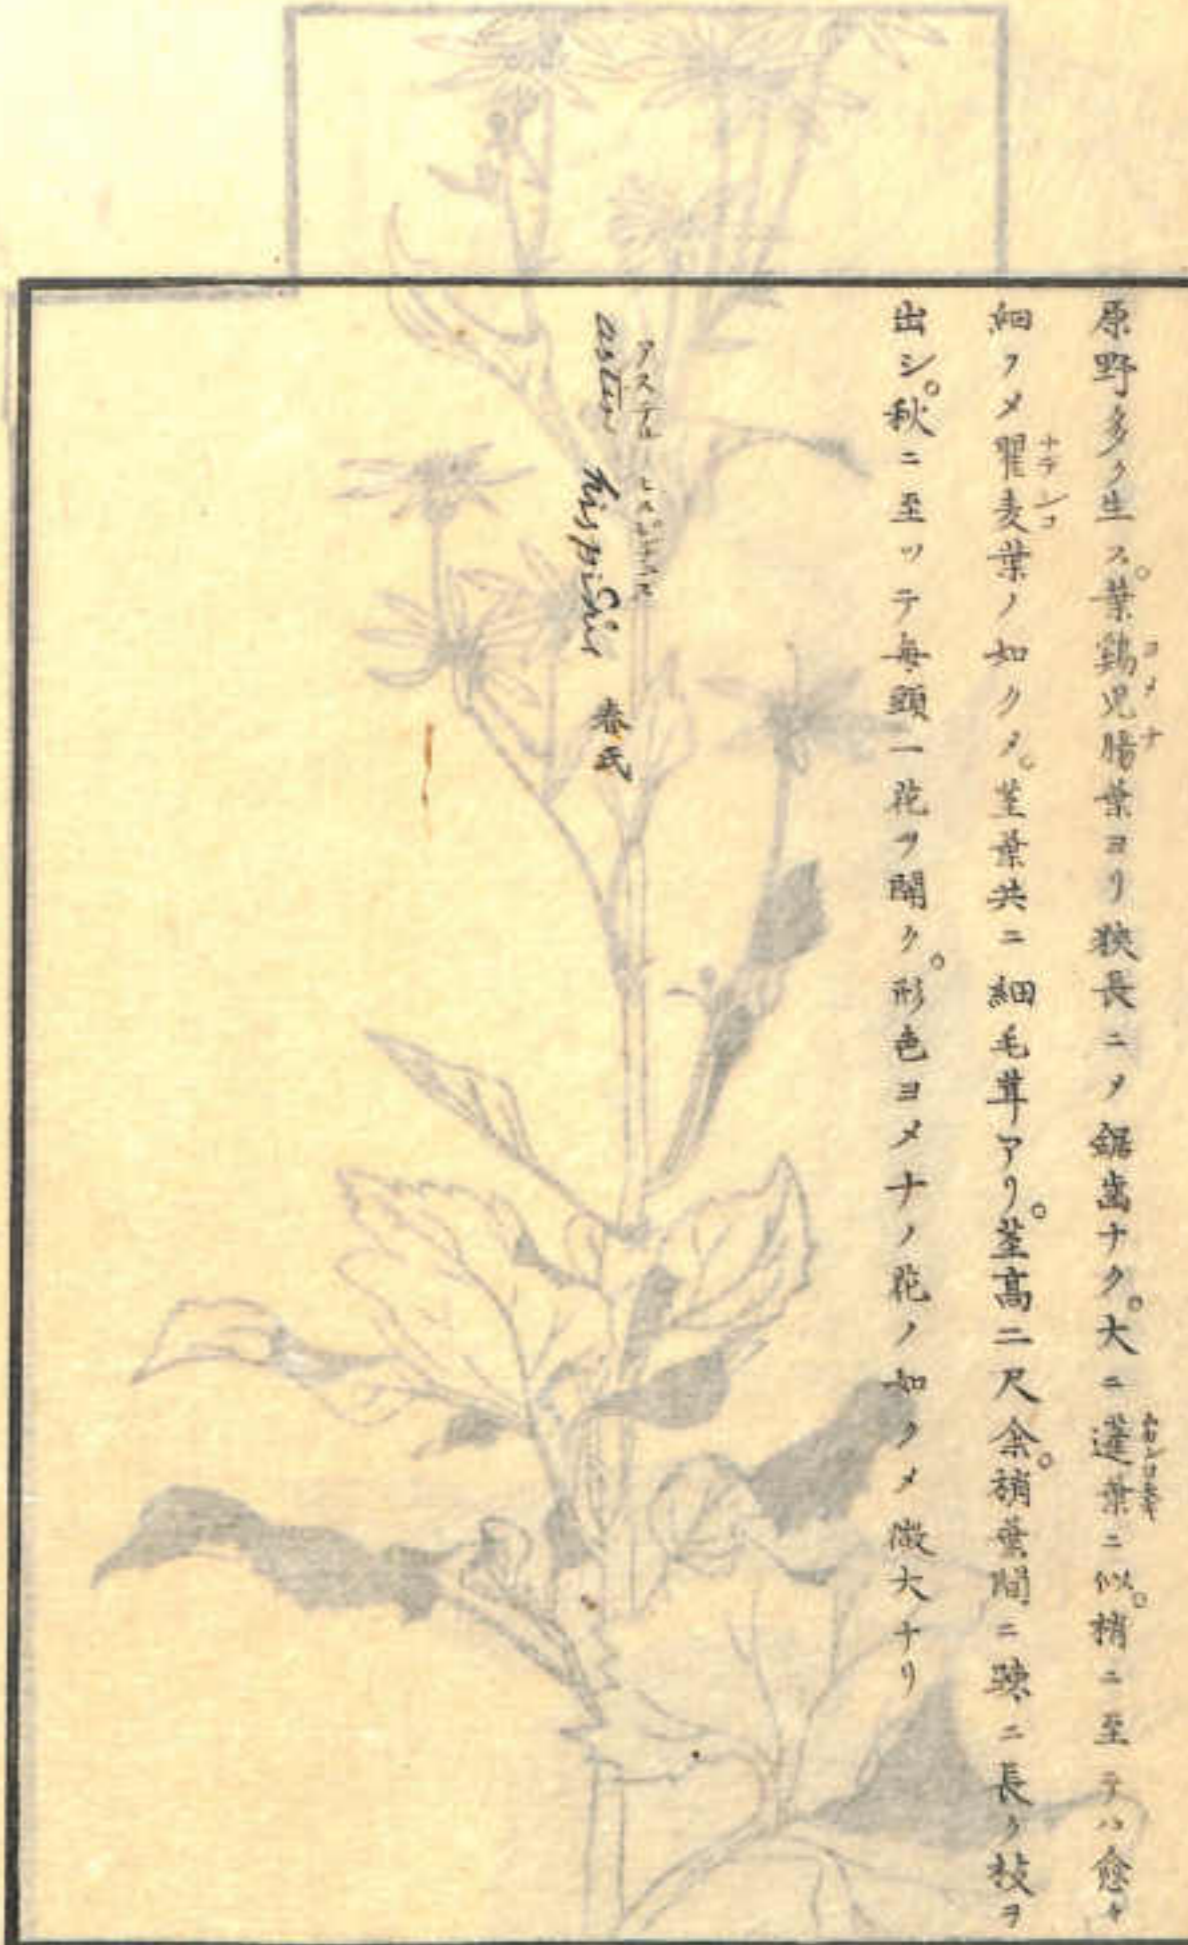 原野多ク生ス。葉鷄児腸葉ヨリ狹長ニメ鋸齒ナク。大ニ蓬葉ニ似。梢ニ至テハ愈々
ヨメナ
細クメ瞿麦葉ノ如クメ。莖葉共ニ細毛茸アリ。莖高二尺余。梢葉間ニ疎ニ長ク枝ヲ
ナデシコ
出シ。秋ニ至ッテ毎頭一花ヲ開ク。形色ヨメナノ花ノ如クメ微大ナリ
アステル ヒスピデユス
aster hispidus 春氏